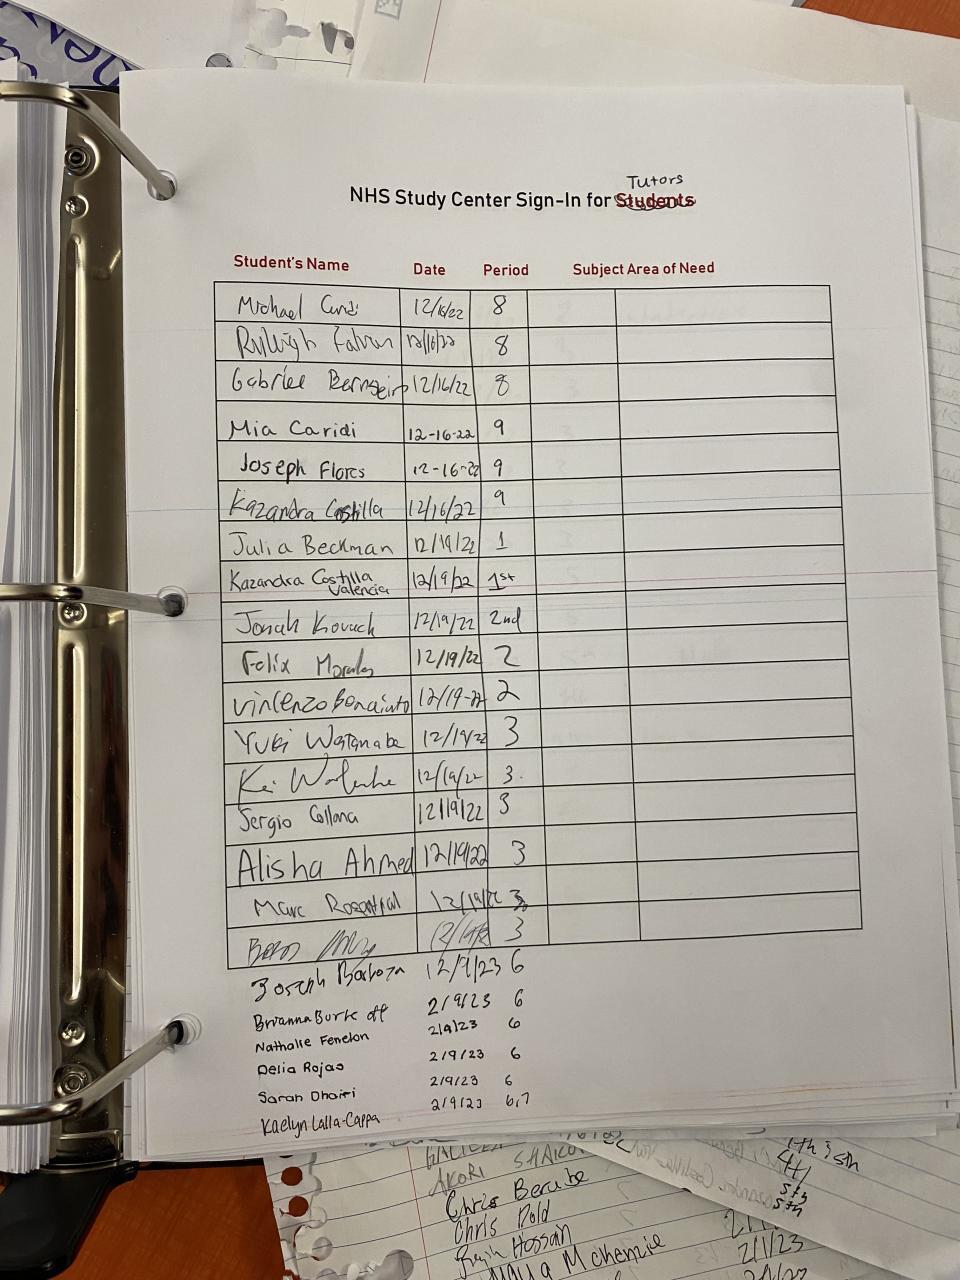 Tutors
NHS Study Center Sign-In for Students
Student's Name Date Period Subject Area of Need
Michael 12/16/22 8
Ryleigh 12/16/22 8
Gabriel Bernstein 12/16/22 8
Mia Caridi 12-16-22 9
Joseph Flores 12-16-22 9
Kazandra Costilla 12/16/22 9
Julia Beckman 12/19/22 1
Kazandra Costilla Valencia 12/19/22 1st
Jonah Kovach 12/19/22 2nd
Felix Morales 12/19/22 2
Vincenzo Bonaiuto 12/19-22 2
Yuki Watanabe 12/19/22 3
Kei 12/19/22 3.
Sergio Collana 12/19/22 3
Alisha Ahmed 12/19/22 3
Marc Rosenthal 12/19/22 3
3
Joseph Barboza 6
Brianna Burke 2/9/23 6
Nathalie Fenelon 2/9/23 6
Delia Rojas 2/9/23 6
Sarah Dhairi 2/9/23 6
Kaelyn Lalla-Cappa 2/9/23 6,7
AKORI
Chris Berube
Chris Dold
Hossain
Mckenzie
4th
5th
5th
2/1/23